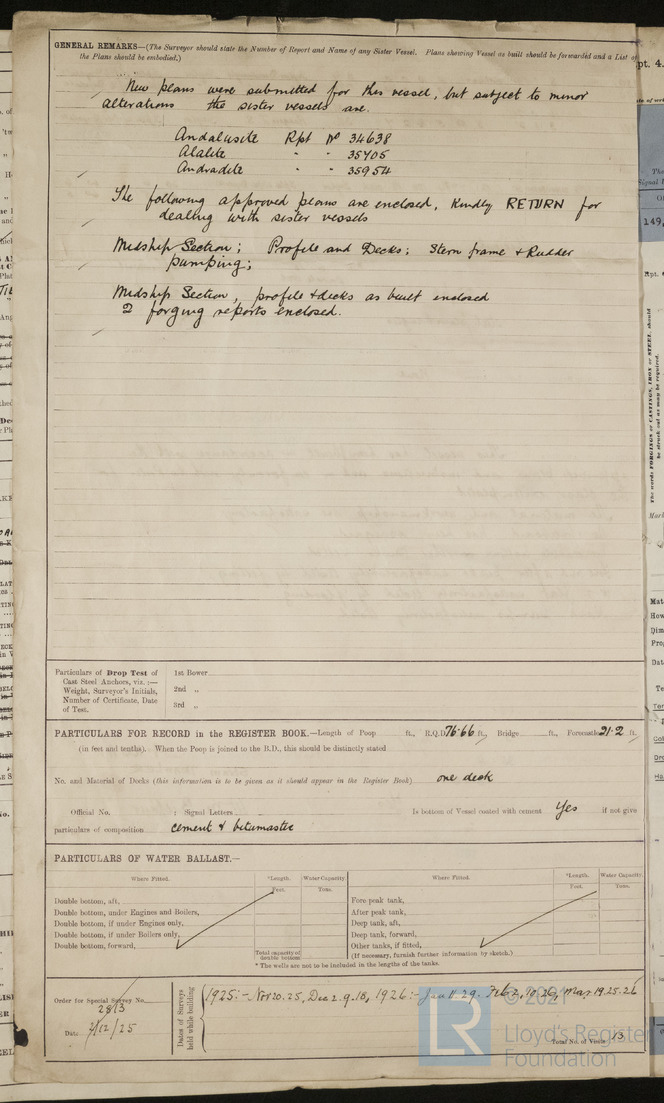 GENERAL REMARKS—(The Surveyor should state the Number of Report and Name of any Sister Vessel. Plans showing Vessel as built should be forwarded and a List of
the Plans should be embodied.)
New plans were submitted for this vessel, but subject to minor
alterations the sister vessels are.
Andalusite Rpt No 34638
Alalite " " 35705
Andradite " " 35954
The following approved plans are enclosed, kindly RETURN for
dealing with sister vessels
Midship Section; Profile and Decks; Stern frame & Rudder
pumping;
Midship Section, profile & decks as built enclosed
2 forging reports enclosed.
Particulars of Drop Test of
Cast Steel Anchors, viz.:—
Weight, Surveyor's Initials,
Number of Certificate, Date
of Test.
1st Bower
2nd "
3rd "
PARTICULARS FOR RECORD in the REGISTER BOOK.—Length of Poop ft., R.Q.D. 76.66 ft., Bridge ft., Forecastle 21.2 ft.
(in feet and tenths). When the Poop is joined to the B.D., this should be distinctly stated
No. and Material of Decks (this information is to be given as it should appear in the Register Book) one deck
Official No. ; Signal Letters Is bottom of Vessel coated with cement Yes if not give
particulars of composition cement & bitumastic
PARTICULARS OF WATER BALLAST.—
Where Fitted. *Length. Water Capacity. Where Fitted. *Length. Water Capacity.
Feet. Tons. Feet. Tons.
Double bottom, aft, Fore peak tank,
Double bottom, under Engines and Boilers, After peak tank,
Double bottom, if under Engines only, Deep tank, aft,
Double bottom, if under Boilers only, Deep tank, forward,
Double bottom, forward, Other tanks, if fitted,
Total capacity of double bottom (If necessary, furnish further information by sketch.)
* The wells are not to be included in the lengths of the tanks.
Order for Special Survey No. 2813
Date 2/12/25
Dates of Surveys held while building
1925:- Nov 20. 25, Dec 2. 9. 18, 1926:- Jan 11. 29. Feb 2, 10. 26, Mar 19. 25. 26
Total No. of Visits 13
© 2021
LR
Lloyd's Register
Foundation